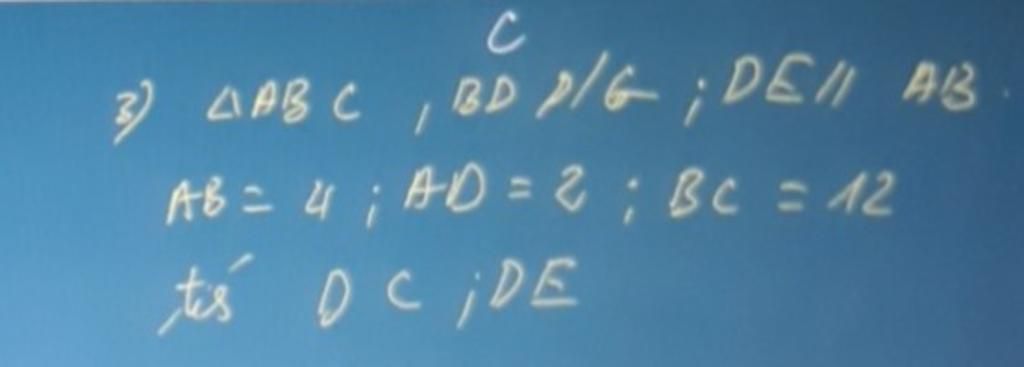 C
3) △ABC , BD P/G ; DE // AB.
AB = 4 ; AD = 2 ; BC = 12
DC ; DE